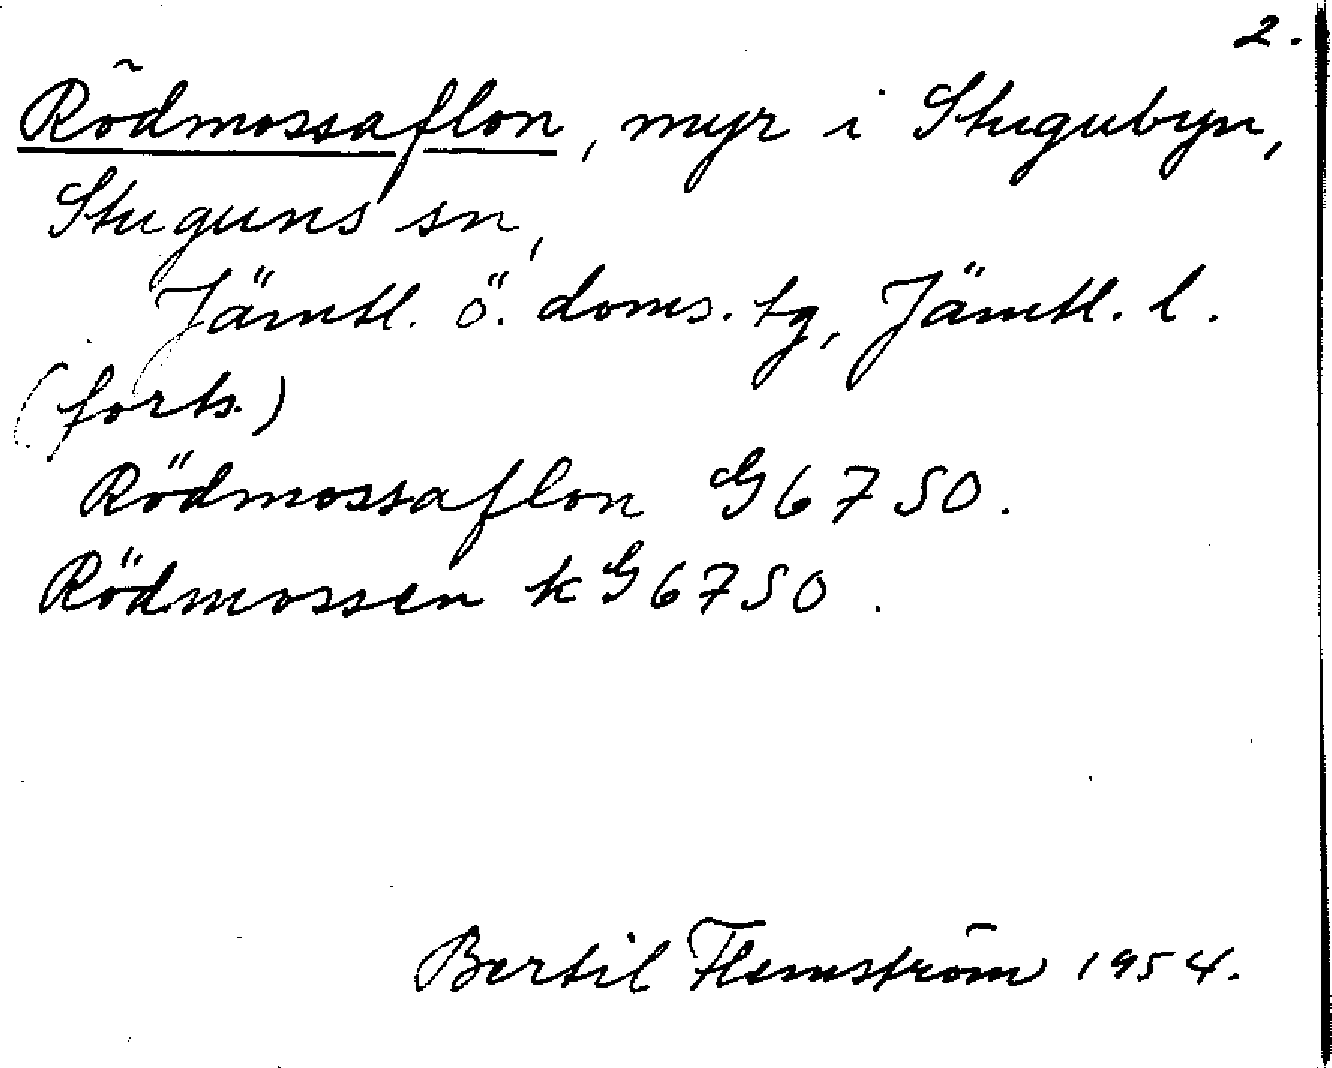 2.
Rödmossaflon, myr i Stugubyn,
Stuguns sn,
Jämtl. ö. doms. tg, Jämtl. l.
(forts.)
Rödmossaflon G 6750.
Rödmossen k G 6750.
Bertil Flemström 1954.